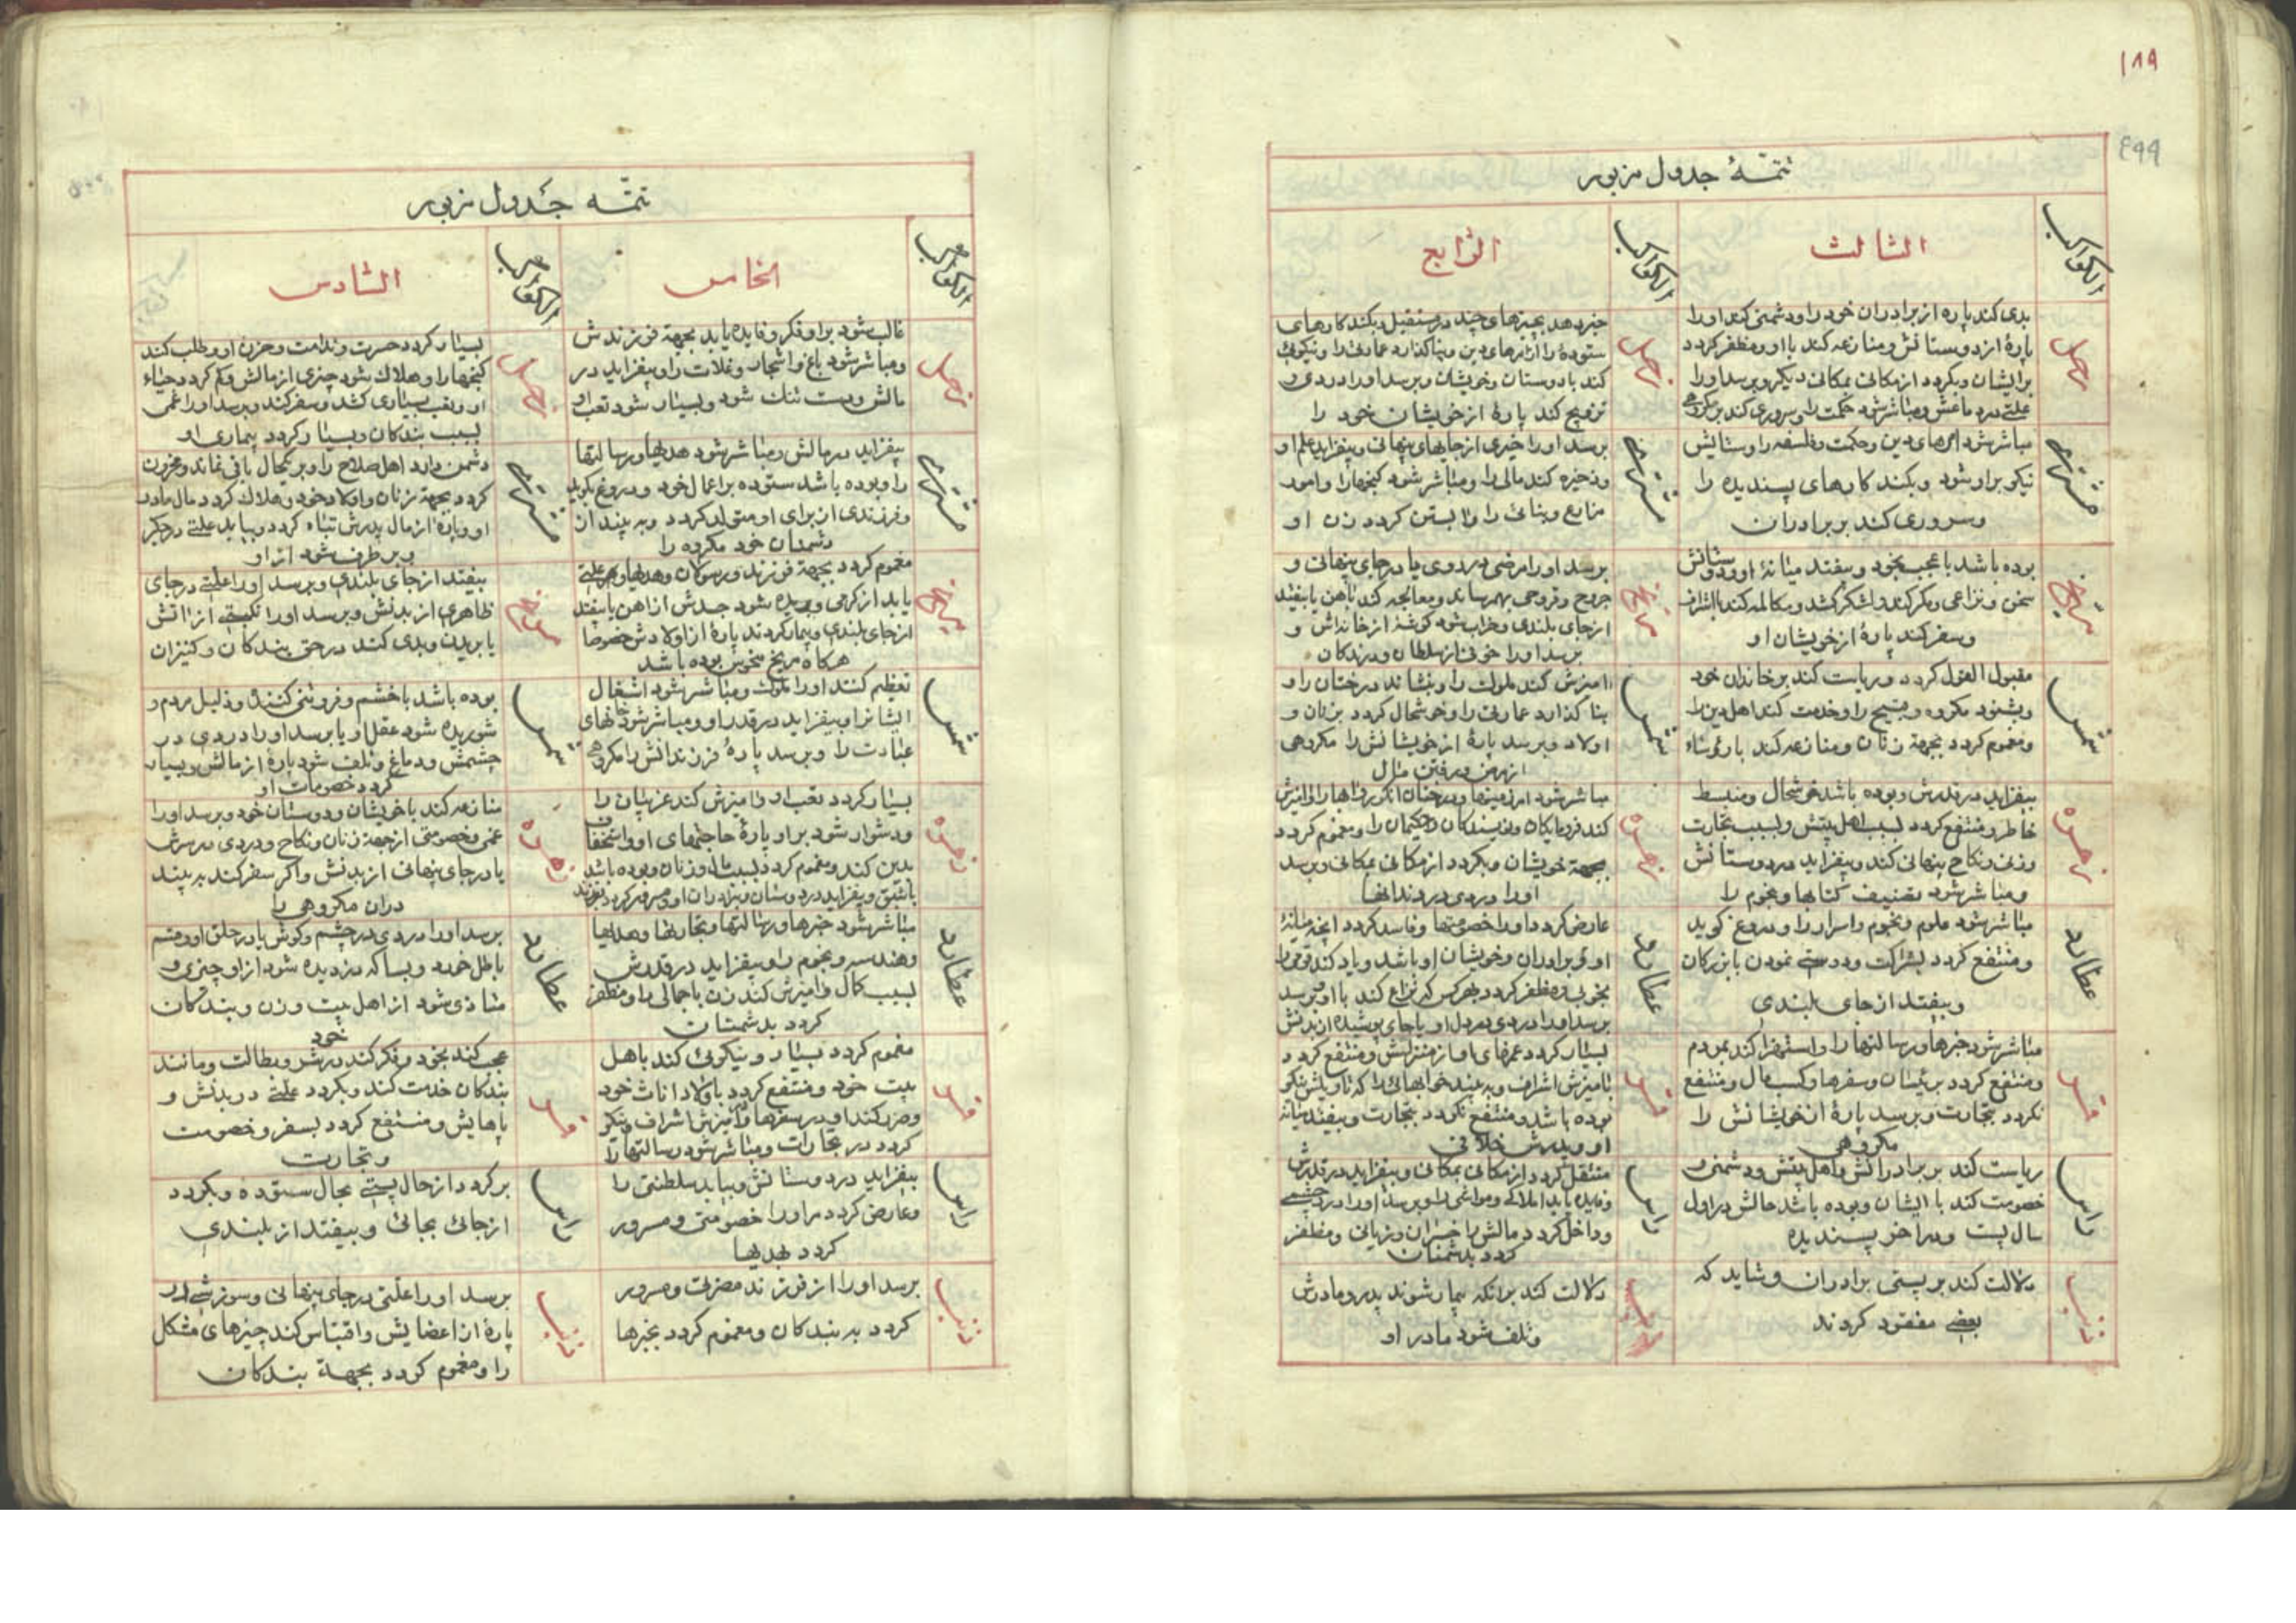 ۱۸۹
۴۹۹
تتمّهٔ جدول مزبور
الکواکب
الثالث
الکواکب
الرّابع
زحل
بدی کند پاره از برادران خود را و دشمنی کند او را
پارهٔ از دوستانش و منازعه کند با او و مظفر کردد
بر ایشان و بکردد از مکانی بمکانی دیکر و برسد او را
علتی در دماغش و مباشر شود حکمت را و سروری کند بر مکروهی
زحل
خبر دهد بچیزهای چند در مستقبل و بکند کارهای
ستوده را از امرهای دین و بنا کذارد عمارتی را و نیکوئی
کند با دوستان و خویشان و برسد او را دردی و
تزویج کند پارهٔ از خویشان خود را
مشتری
مباشر شود امرهای دین و حکمت و فلسفه را و ستایش
نیکو بر او شود و بکند کارهای پسندیده را
و سروری کند بر برادران
مشتری
برسد او را خیری از جایهای پنهانی و بیفزاید علم او
و ذخیره کند مالی را و مباشر شود کنجها را و امور
مزارع و بنائی را و آبستن کردد زن او
مریخ
بوده باشد با عجب بخود و بیفتد میانهٔ او و دوستانش
سخن و نزاعی و مکر کند و لشکر کشد و مکالمه کند با اشراف
و سفر کند پارهٔ از خویشان او
مریخ
برسد او را مرضی در روی یا در جای پنهانی و
جروح و قروحی بهم رساند و معالجه کند بآهن یا بیفتد
از جای بلندی و خراب شود کوشهٔ از خانه‌اش و
برسد او را خوفی از سلطان و درندکان
شمس
مقبول القول کردد و ریاست کند بر خاندان خود
و بشنود مکروه و قبیح را و خدمت کند اهل دین را
و مغموم کردد بجهة زنان و منازعه کند با رؤساء
شمس
آمیزش کند ملوک را و بنشاند درختان را و
بنا کذارد عمارتی را و خوشحال کردد بزنان و
اولاد و برسد پارهٔ از خویشانش را مکروهی
از رفتن مال
زهره
بیفزاید در قدرش و بوده باشد خوشحال و منبسط
خاطر و منتفع کردد بسبب اهل بیتش و بسبب تجارت
وزنی و نکاح پنهانی کند و بیفزاید در دوستانش
و مباشر شود تصنیف کتابها و نجوم را
زهره
مباشر شود امر زمینها و درختان انکور و آبها را و آمیزش
کند فرومایکان و نویسندکان و حکیمان را و مغموم کردد
بجهة خویشان و بکردد از مکانی بمکانی و برسد
او را دردی در دندانها
عطارد
مباشر شود علوم و نجوم و اسرار را و دروغ کوید
و منتفع کردد بشراکت و دوستی نمودن با بزرکان
و بیفتد از جای بلندی
عطارد
عارض کردد او را خصومتها و فاسد کردد آنچه میانهٔ
او و برادران و خویشان او باشد و یاد کند قومی را
بخوبی و مظفر کردد بهر کس که نزاع کند با او و برسد
برسد او را دردی در دل او یا جای پوشیده از بدنش
قمر
مباشر شود خبرها و رسالتها را و استهزا کند بمردم
و منتفع کردد برئیسان و سفرها و کسب مال و منتفع
نکردد بتجارت و برسد پارهٔ از خویشانش را
مکروهی
قمر
بسیار کردد غمهای او از منزلش و منتفع کردد
بآمیزش اشراف و به بیند خوابهائی را که تأویلش نیکو
بوده باشد و منتفع نکردد بتجارت و بیفتد میانهٔ
او و پدرش خلافی
راس
ریاست کند بر برادرانش و اهل بیتش و دشمنی و
خصومت کند با ایشان و بوده باشد حالش در اول
سال پست و در آخر پسندیده
راس
منتقل کردد از مکانی بمکانی و بیفزاید در قدرش
و فایده یابد املاک و مواشی را و برسد او را درد چشمی
و داخل کردد مالش را خسران و زیانی و مظفر
کردد بدشمنان
ذنب
دلالت کند بر پستی برادران و شاید که
بعضی مفقود کردند
ذنب
دلالت کند بر آنکه بیمار شوند پدر و مادرش
و تلف شود مادر او
تتمّه جدول مزبور
الکواکب
الخامس
الکواکب
السّادس
زحل
غالب شود بر او فکر و فایده یابد بجهة فرزندش
و مباشر شود باغ و اشجار و غلات را و بیفزاید در
مالش و دست تنک شود و بسیار شود تعب او
زحل
بسیار کردد حسرت و ندامت و حزن او و طلب کند
کنجها را و هلاک شود چیزی از مالش و کم کردد حیاء
او و تعب بسیاری کشد و سفر کند و برسد او را غمی
بسبب بندکان و بسیار کردد بیماری او
مشتری
بیفزاید در مالش و مباشر شود هدیها و رسالتها
را و بوده باشد ستوده بر اعمال خود و دروغ نکوید
و فرزندی از برای او متولد کردد و به بیند از
دشمنان خود مکروه را
مشتری
دشمن دارد اهل صلاح را و بر یکحال باقی نماند و محزون
کردد بجهة زنان و اولاد خود و هلاک کردد مال مادر
او و پارهٔ از مال پدرش تباه کردد و بیابد علتی در جکر
و بر طرف شود از او
مریخ
مغموم کردد بجهة فرزند و رسولان و هدیها و هم علتی
یابد از کرمی و بریده شود جسدش از آهن یا بیفتد
از جای بلندی و بیمار کردند پارهٔ از اولادش خصوصا
هرکاه مریخ منحوس بوده باشد
مریخ
بیفتد از جای بلندی و برسد او را علتی در جای
ظاهری از بدنش و برسد او را نکبتی از آتش
یا بریدن و بدی کند در حق بندکان و کنیزان
شمس
تعظیم کنند او را ملوک و مباشر شود اشغال
ایشان را و بیفزاید در قدر او و مباشر شود خانهای
عبادت را و برسد پارهٔ فرزندانش را مکروهی
شمس
بوده باشد با خشم و فروتنی کننده و ذلیل مردم و
شوریده شود عقل او یا برسد او را دردی در
چشمش و دماغ و تلف شود پارهٔ از مالش و بسیار
کردد خصومات او
زهره
بسیار کردد تعب او و آمیزش کند غریبان را
و دشوار شود بر او پارهٔ حاجتهای او و استخفاف
بدین کند و مغموم کردد بسبب مال و زنان و بوده باشد
با شبق و بیفزاید در دوستان و برادران او و مسرور کردد بفرزند
زهره
منازعه کند با خویشان و دوستان خود و برسد او را
غمی و خصومتی از جهة زنان و نکاح و دردی در سرش
یا در جای پنهانی از بدنش و اکر سفر کند به بیند
در آن مکروهی را
عطارد
مباشر شود خبرها و رسالتها و تجارتها و هدیها
و هندسه و نجوم را و بیفزاید در قدرش
بسبب کمال و آمیزش کند زن با جمالی را و مظفر
کردد بدشمنان
عطارد
برسد او را دردی در چشم و کوش یا در حلق او و قسم
باطل خورد و بسا که دزدیده شود از او چیزی و
متأذی شود از اهل بیت و زن و بندکان
خود
قمر
مغموم کردد بسیار و نیکوئی کند باهل
بیت خود و منتفع کردد باولاد اناث خود
و ضرر کند او در سفرها و آمیزش اشراف و نیکو
کردد در تجارات و مباشر شود رسالتها را
قمر
عجب کند بخود و فکر کند در شر و بطالت و مانند
بندکان خدمت کند و بکردد علتی در بدنش و
پاهایش و منتفع کردد بسفر و خصومت
و تجارت
راس
بیفزاید در دوستانش و بیابد سلطنتی را
و عارض کردد مر او را خصومتی و مسرور
کردد بهدیها
راس
برکردد از حال پستی بحال ستوده و بکردد
از جائی بجائی و بیفتد از بلندی
ذنب
برسد او را از فرزند مضرتی و مسرور
کردد به بندکان و مغموم کردد بخبرها
ذنب
برسد او را علتی در جای پنهانی و سوزشی در
پارهٔ از اعضایش و اقتباس کند چیزهای مشکل
را و مغموم کردد بجهة بندکان